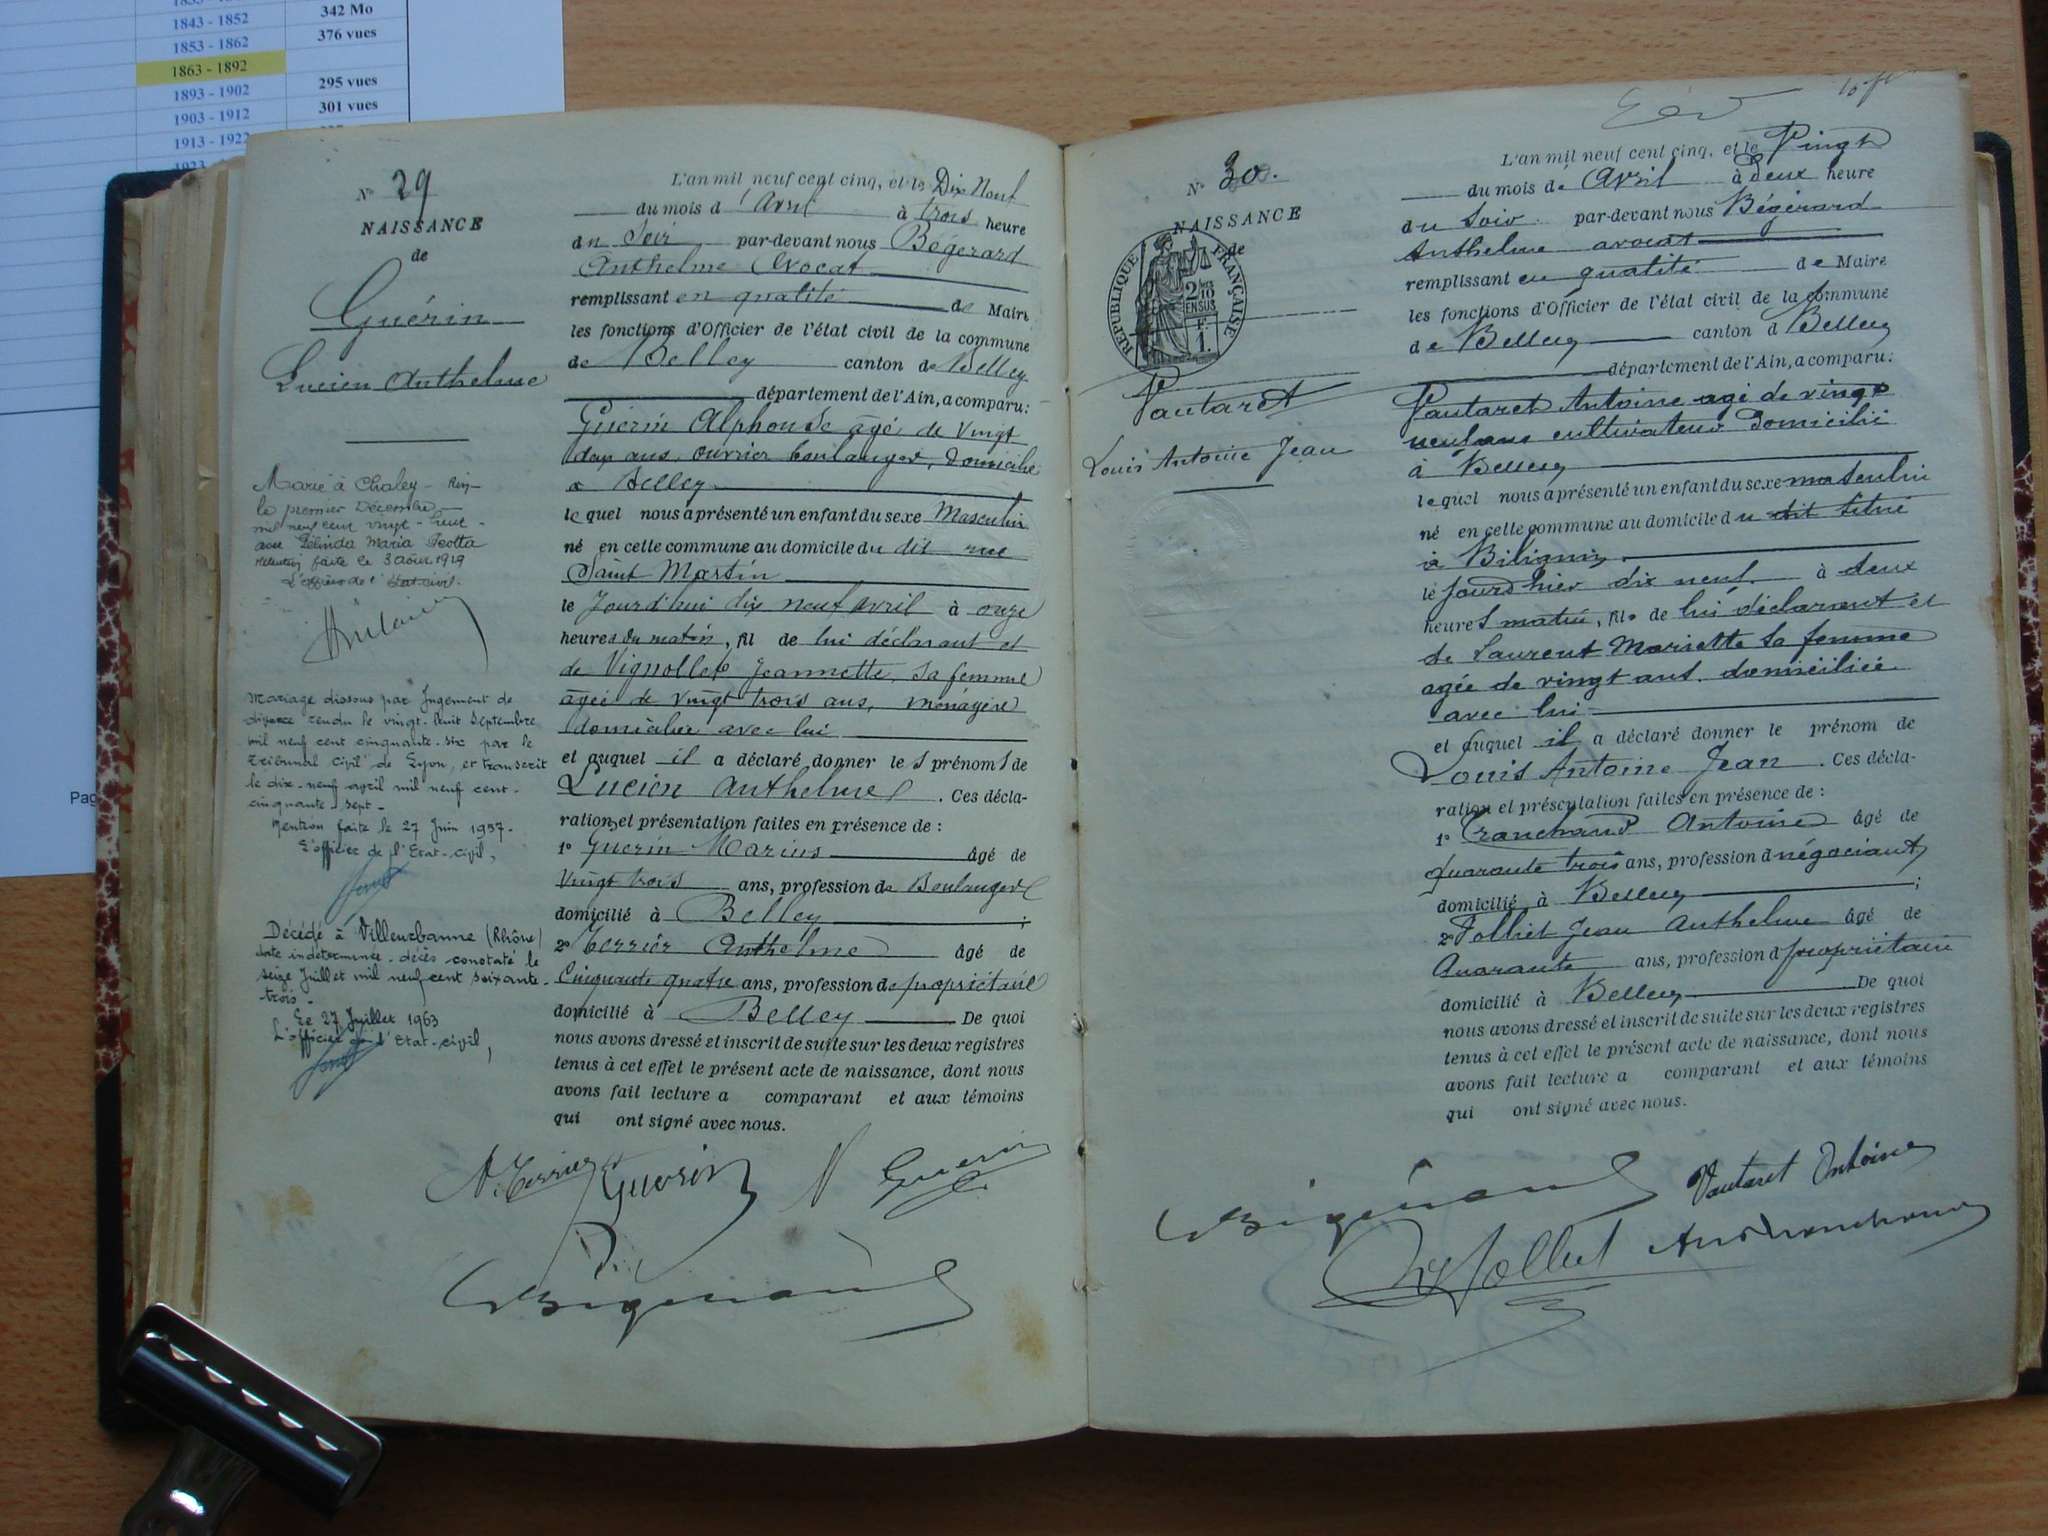 1843 - 1852 342 Mo
1853 - 1862 376 vues
1863 - 1892
1893 - 1902 295 vues
1903 - 1912 301 vues
1913 - 1922
Pag
N° 29
NAISSANCE
de
Guérin
Lucien Anthelme
Marié à Chaley - Ain -
le premier Décembre
mil neuf cent vingt - huit -
avec Zélinda Maria Teotta
L'officier de l'Etat civil.
Mariage dissous par Jugement de
divorce rendu le vingt-huit Septembre
mil neuf cent cinquante-six par le
Tribunal Civil de Lyon, et transcrit
le dix-neuf avril mil neuf cent-
cinquante-sept-
Mention faite le 27 Juin 1957-
L'officier de l'Etat-civil,
Décédé à Villeurbanne (Rhône)
date indéterminée - décès constaté le
seize Juillet mil neuf cent soixante-
trois -
Le 27 Juillet 1963
L'officier de l'Etat-civil,
L'an mil neuf cent cinq, et le Dix Neuf
du mois d'Avril à trois heure
du Soir par-devant nous Bégerard
Anthelme Avocat
remplissant en qualité de Maire
les fonctions d'Officier de l'état civil de la commune
de Belley canton de Belley
département de l'Ain, a comparu:
Guérin Alphonse âgé de vingt
ans, ouvrier boulanger, domicilié
à Belley
le quel nous a présenté un enfant du sexe Masculin
né en cette commune au domicile du dit rue
Saint Martin
le Jourd'hui dix neuf avril à onze
heures du matin, fils de lui déclarant et
de Vignollet Jeannette, sa femme
âgée de vingt trois ans, ménagère
domiciliée avec lui
et auquel il a déclaré donner les prénoms de
Lucien Anthelme. Ces décla-
ration et présentation faites en présence de :
1° Guerin Marius âgé de
Vingt trois ans, profession de Boulanger
domicilié à Belley ;
2° Terrier Anthelme âgé de
Cinquante quatre ans, profession de propriétaire
domicilié à Belley De quoi
nous avons dressé et inscrit de suite sur les deux registres
tenus à cet effet le présent acte de naissance, dont nous
avons fait lecture a comparant et aux témoins
qui ont signé avec nous.
A. Terrier Guerin Guerin
N° 30.
NAISSANCE
de
RÉPUBLIQUE FRANÇAISE
2/10 EN SUS
F. 1.
Vautaret
Louis Antoine Jean
L'an mil neuf cent cinq, et le Vingt
du mois de Avril à deux heure
du Soir par-devant nous Bégerard
Anthelme avocat
remplissant en qualité de Maire
les fonctions d'Officier de l'état civil de la commune
de Belley canton d Belley
département de l'Ain, a comparu:
Vautaret Antoine agé de vingt
neuf ans cultivateur domicilié
à Belley
le quel nous a présenté un enfant du sexe masculin
né en cette commune au domicile du dit situé
à Billignin
le jourd'hier dix neuf à deux
heures matin, fils de lui déclarant et
de Laurent Mariette sa femme
agée de vingt ans domiciliée
avec lui
et auquel il a déclaré donner le prénom de
Louis Antoine Jean. Ces décla-
ration et présentation faites en présence de :
1° Tranchand Antoine âgé de
quarante trois ans, profession d négociant
domicilié à Belley ;
2° Folliet Jean Anthelme âgé de
Quarante ans, profession d propriétaire
domicilié à Belley De quoi
nous avons dressé et inscrit de suite sur les deux registres
tenus à cet effet le présent acte de naissance, dont nous
avons fait lecture a comparant et aux témoins
qui ont signé avec nous.
Vautaret Antoine
Folliet